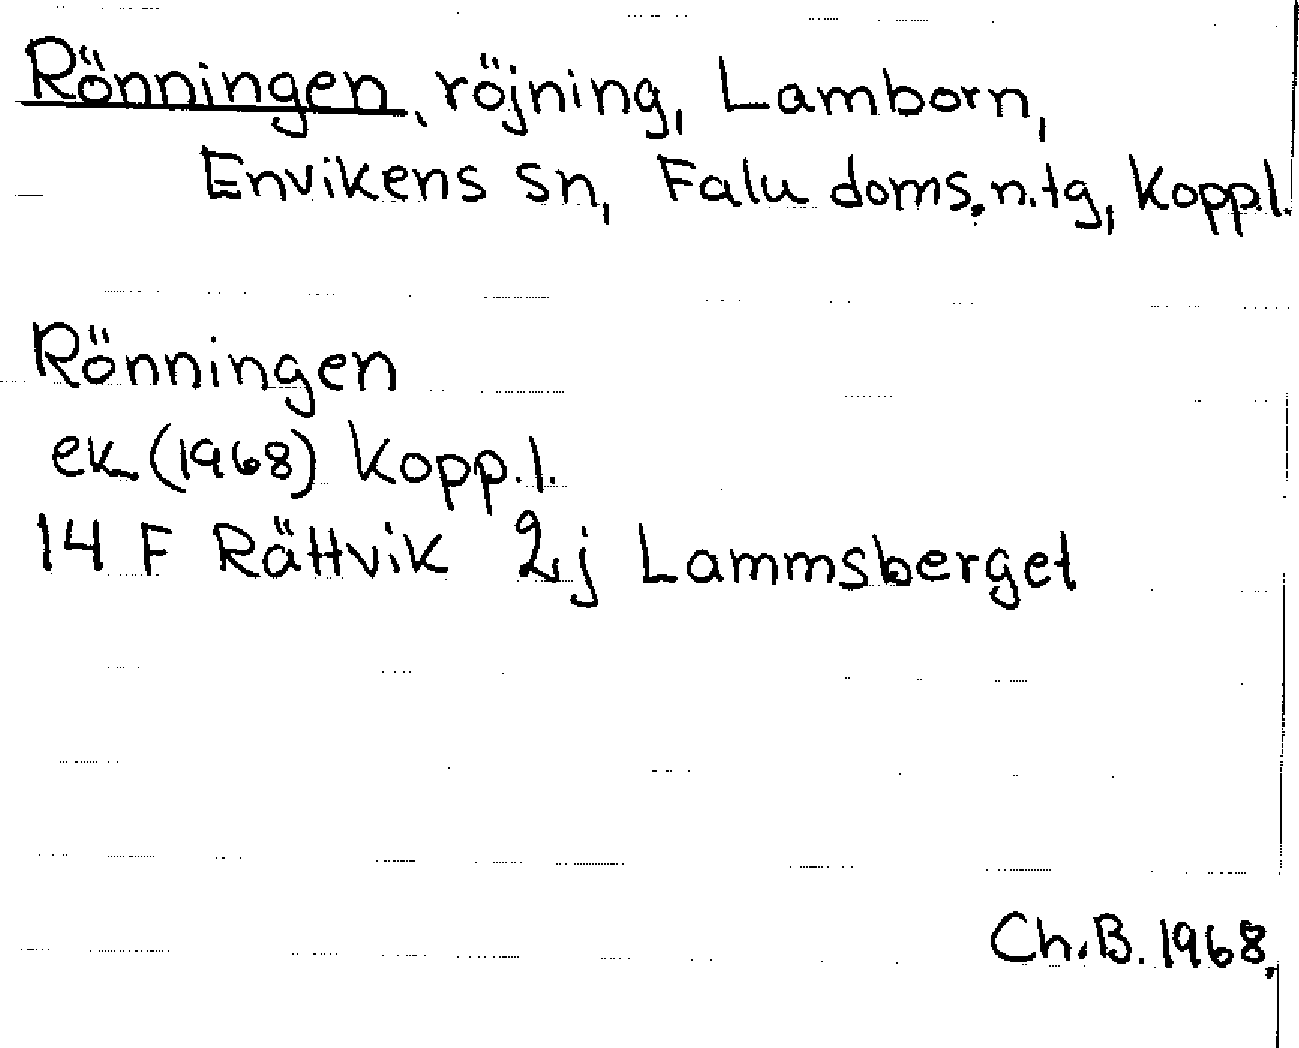 Rönningen, röjning, Lamborn,
Envikens sn, Falu doms.n.tg, Kopp.l.
Rönningen
ek (1968) Kopp.l.
14 F Rättvik 2j Lammsberget
Ch.B. 1968.